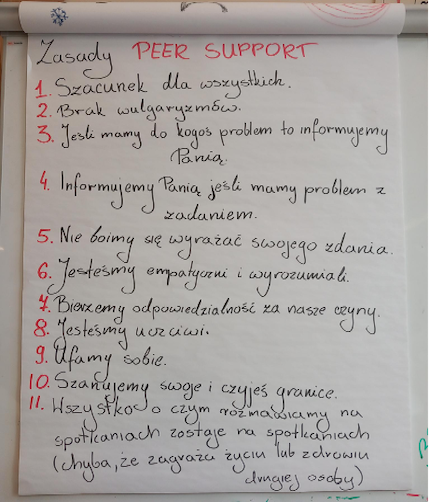 Zasady PEER SUPPORT
1. Szacunek dla wszystkich.
2. Brak wulgaryzmów.
3. Jeśli mamy do kogoś problem to informujemy
Panią.
4. Informujemy Panią jeśli mamy problem z
zadaniem.
5. Nie boimy się wyrażać swojego zdania.
6. Jesteśmy empatyczni i wyrozumiali.
7. Bierzemy odpowiedzialność za nasze czyny.
8. Jesteśmy uczciwi.
9. Ufamy sobie.
10. Szanujemy swoje i czyjeś granice.
11. Wszystko o czym rozmawiamy na
spotkaniach zostaje na spotkaniach
(chyba, że zagraża życiu lub zdrowiu
drugiej osoby)